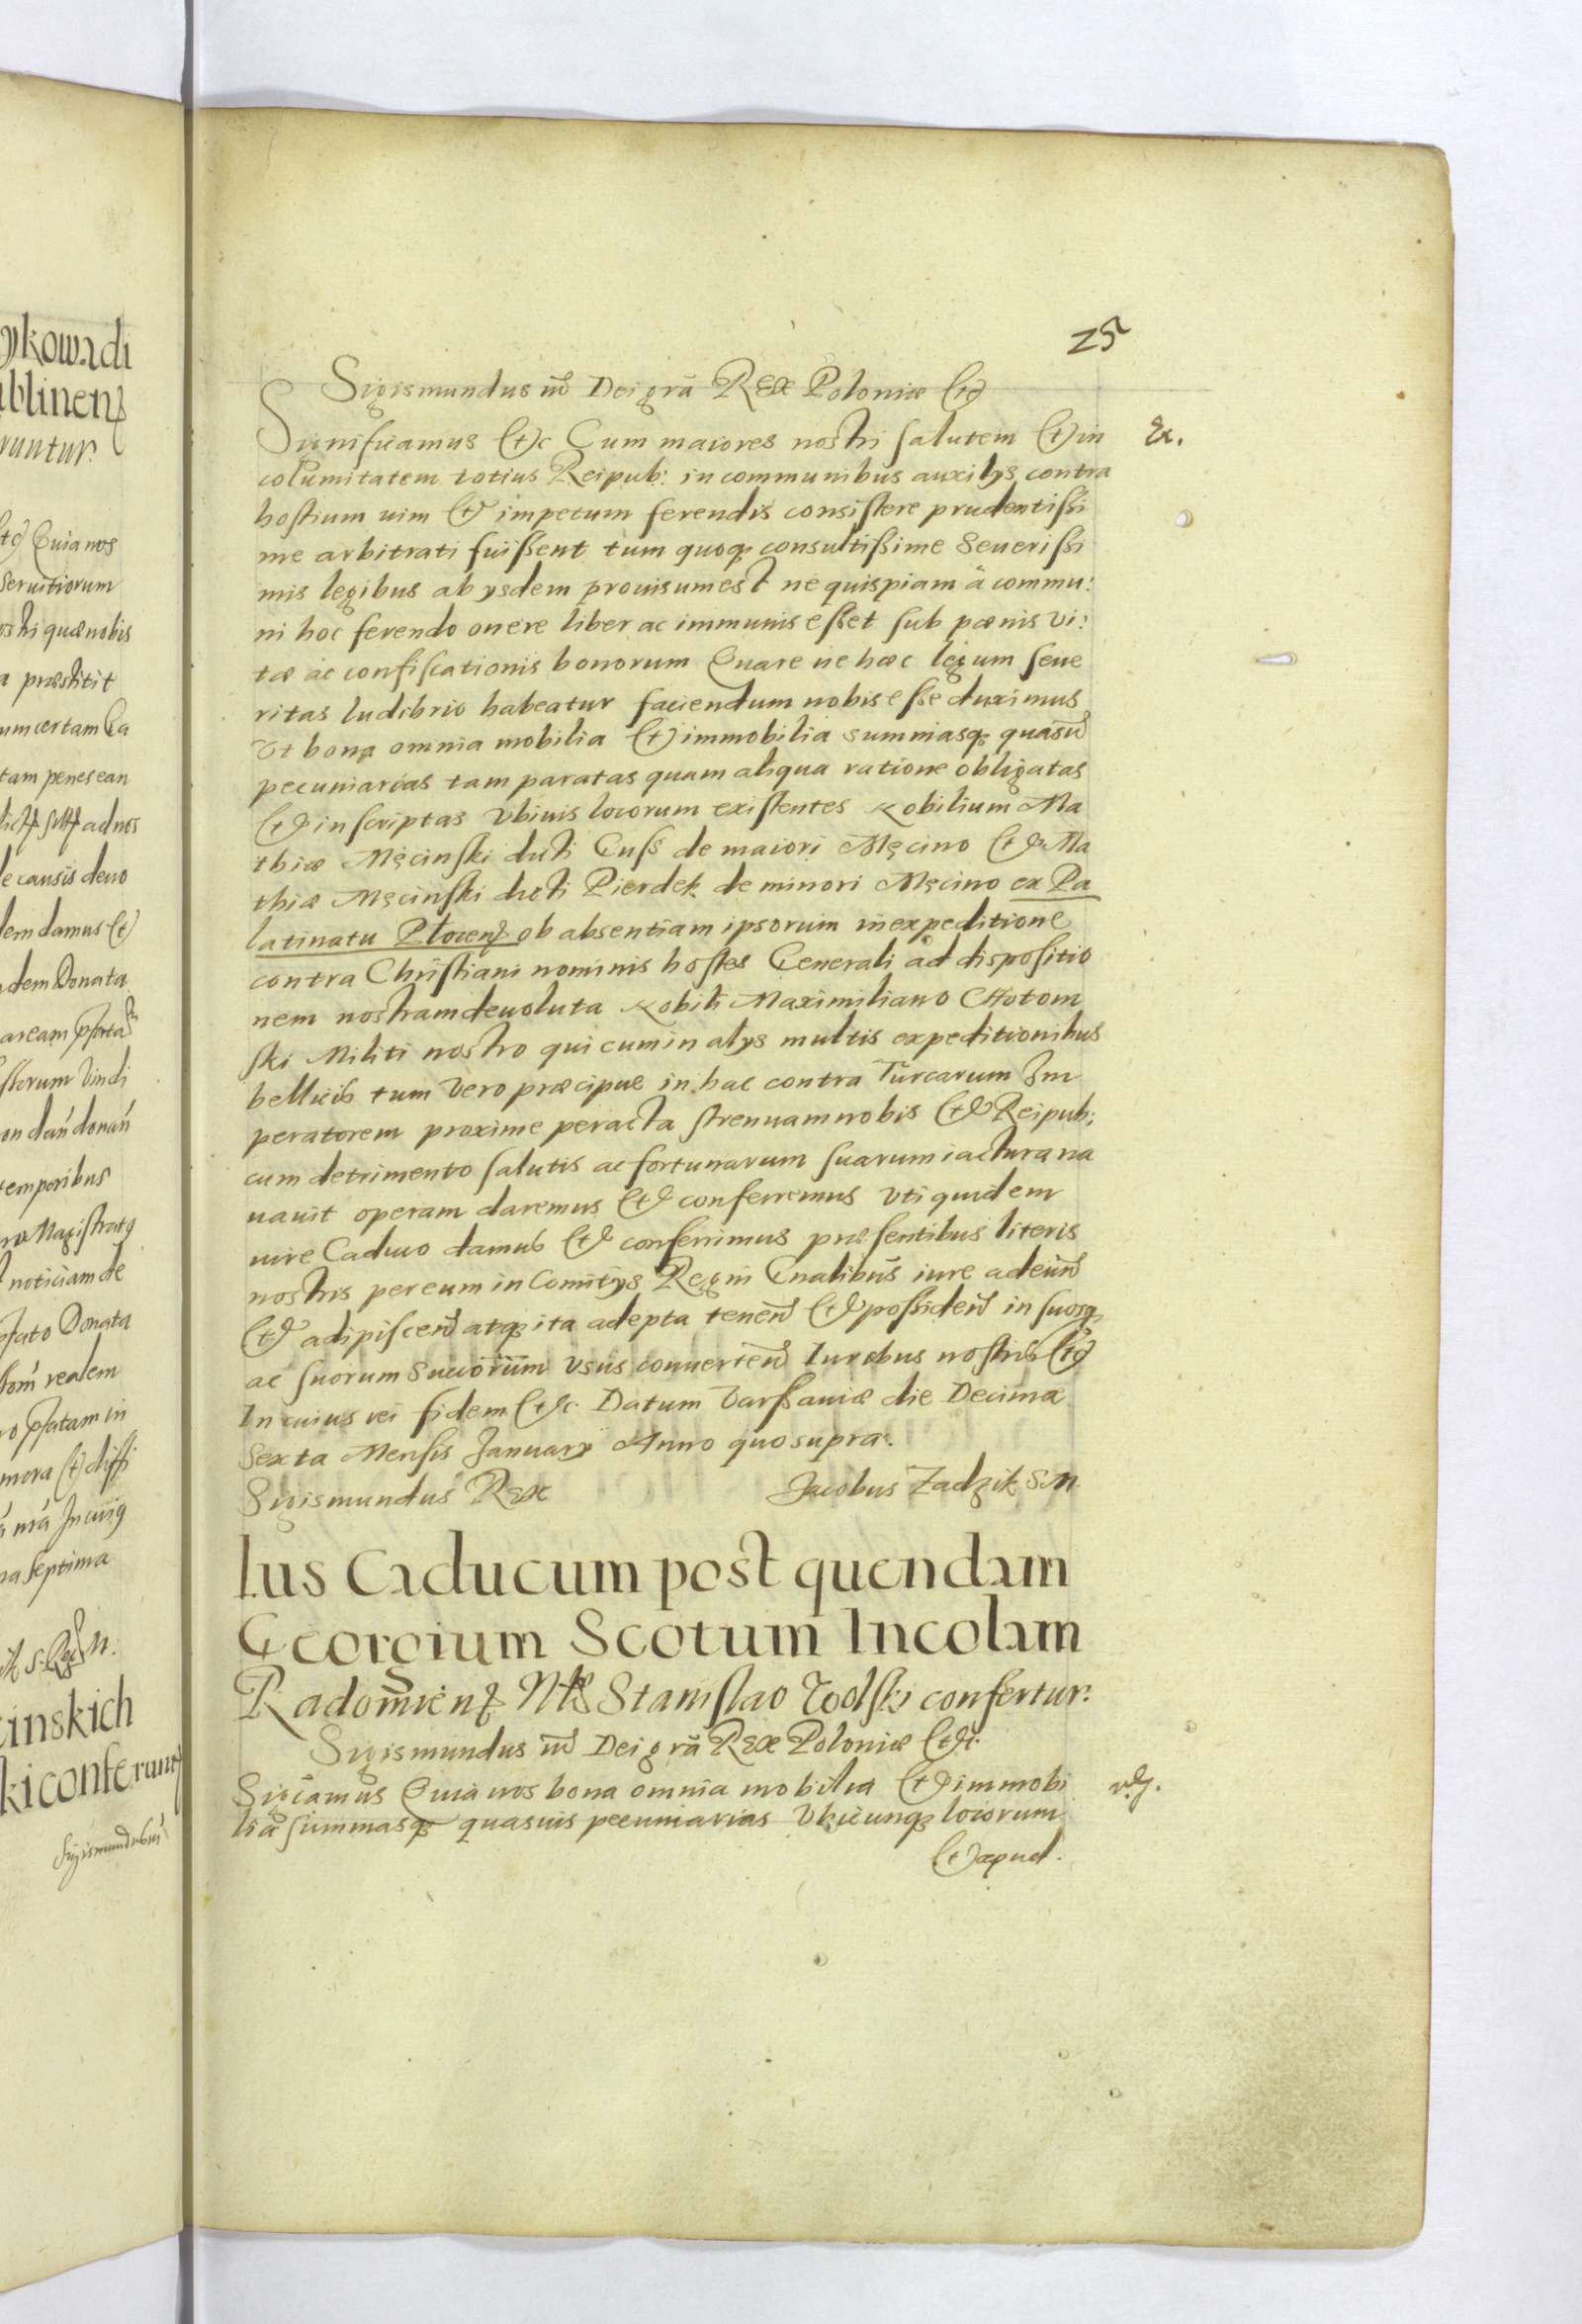 ykowadi
ublinenſ
runtur.
etc Quia nos
servitiorum
ostri quæ nobis
a præstitit
um certam Ca
tam penes ean
ad nos
e causis devo
dem damus et
dem Donata
aream pſata
storum Vindi
on dan̄ donan̄
temporibus
ræ Magistratq
t noticiam de
pſato Donata
realem
ro pſatam in
mora et diſſi
a nrā In cuiq
na Septima
S. Reg N.
cinskich
ki conferunt
Sigismundus iii
25
Sigismundus iii Dei grā REX Poloniæ etc
Significamus etc Cum maiores nostri salutem et in
Ex.
columitatem totius Reipub: in communibus auxilys contra
hostium uim et impetum ferendis consistere prudentissi
me arbitrati fuissent tum quoq consultissime Severissi
mis legibus ab ysdem provisum est ne quispiam à commu:
ni hoc ferendo onere liber ac immunis esset sub pœnis vi:
tæ ac confiscationis bonorum Quare ne hæc legum seve
ritas ludibrio habeatur faciendum nobis esse duximus
Ut bona omnia mobilia et immobilia summasq quasuis
pecuniarias tam paratas quam aliqua ratione obligatas
et inscriptas Ubiuis locorum existentes Nobilium Ma
thiæ Męcinski dicti Cuss de maiori Męcino et Ma
thiæ Męcinski dicti Pierdek de minori Męcino ex Pa
latinatu Plocenſ ob absentiam ipsorum in expeditione
contra Christiani nominis hostes Generali ad dispositio
nem nostram devoluta Nobili Maximiliano Chotom
ski Militi nostro qui cum in alys multis expeditionibus
bellicis tum vero præcipue in hac contra Turcarum Im
peratorem proxime peracta strenuam nobis et Reipub:
cum detrimento salutis ac fortunarum suarum iactura na
uauit operam daremus et conferremus Uti quidem
iure Caduco damus et conferimus præsentibus literis
nostris per eum in Comitys Regni Gnalibus iure adeun̄
et adipiscen̄ atq ita adepta tenen̄ et possiden̄ in suosq
ac suorum Succorum usus convertend Iuribus nostris etc
In cuius rei fidem etc. Datum Varssaviæ die Decima
Sexta Mensis January Anno quo supra.
Sigismundus Rex Jacobus Zadzik S. M.
Ius Caducum post quendam
Georgium Scotum Incolam
Radomienſ Nli Stanislao Rodski confertur.
Sigismundus iii Dei grā REX Poloniæ etc.
Sigcamus Quia nos bona omnia mobilia et immobi
lia summasq quasuis pecuniarias Ubicunq locorum
et apud.